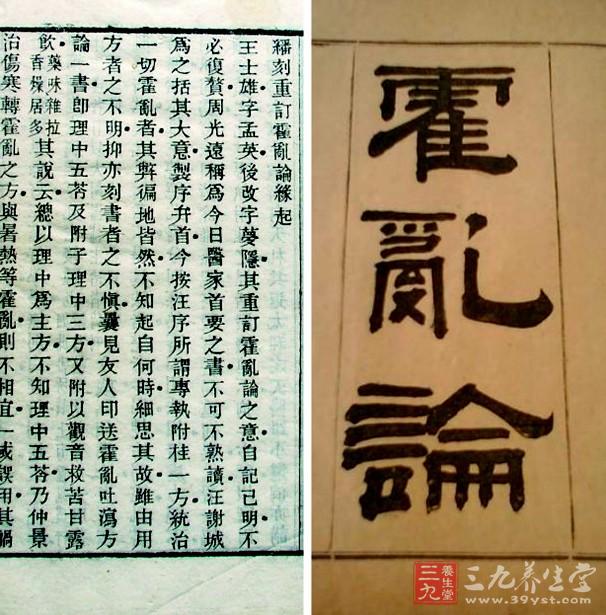 繙刻重訂霍亂論緣起
王士雄字孟英後改字夢隱其重訂霍亂論之意自記已明不
必復贅周光遠稱為今日醫家首要之書不可不熟讀汪謝城
為之括其大意製序弁首今按汪序所謂專執附桂一方統治
一切霍亂者其弊徧地皆然不知起自何時細思其故雖由用
方者之不明抑亦刻書者之不慎曩見友人印送霍亂吐瀉方
論一書卽理中五苓及附子理中三方又附以觀音救苦甘露
飲藥味雜拉香燥居多其說云總以理中為主方不知理中五苓乃仲景
治傷寒轉霍亂之方與暑熱等霍亂則不相宜一或誤用其禍
霍亂論
三九
養生堂
三九养生堂
www.39yst.com